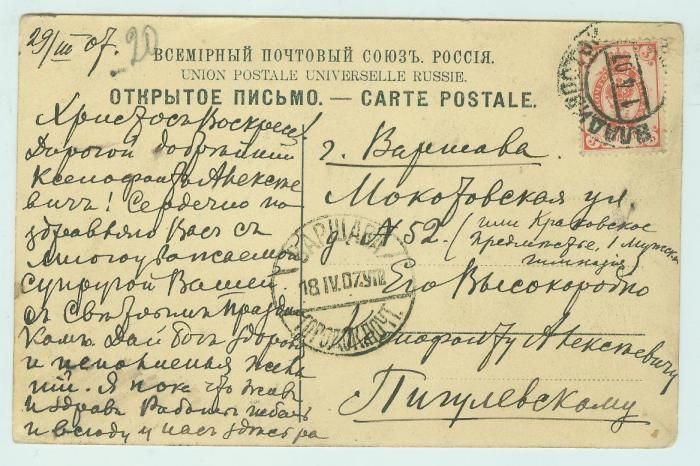 29/III 07.
20
ВСЕМІРНЫЙ ПОЧТОВЫЙ СОЮЗЪ. РОССІЯ.
UNION POSTALE UNIVERSELLE RUSSIE.
ОТКРЫТОЕ ПИСЬМО. — CARTE POSTALE.
Христосъ Воскресъ!
Дорогой добрѣйшій
Ксенофонтъ Алексѣ
евичъ! Сердечно по
здравляю Васъ съ
многоуважаемой
супругой Вашей
съ Свѣтлымъ Празд
комъ. Дай Богъ здоров
и исполненья жела
ній. Я пока что живъ
и здравъ. Работы
и всюду у насъ
г. Варшава.
Мокотовская ул.
д № 52. (или Краковское
предмѣстье, 1 Мужская
гимназія)
Его Высокородію
Ксенофонту Алексѣевичу
Пигулевскому
ВЛАДИВОСТОКЪ
1 4 07
ВАРШАВА
18 IV.07 УТР
ГОРОД. ПОЧТ.